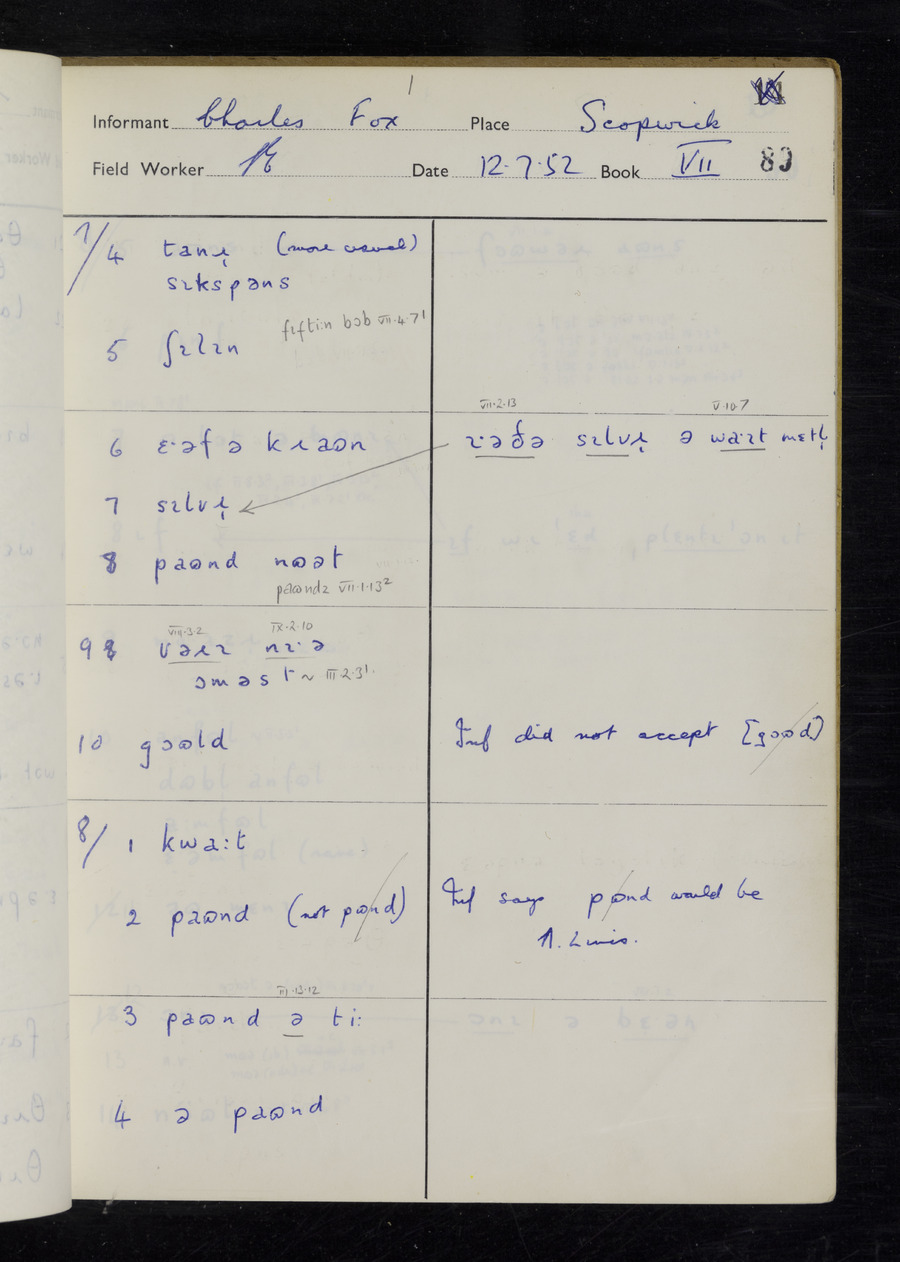 1
Informant Charles Fox Place Scopwick
Field Worker Date 12.7.52 Book VII 80
7/4 tanɪ̣ (more usual)
sɪkspəns
fɪfti:n bɔb VII.4.7¹
5 ʃɪlɪn
VII.2.13 V.10.7
6 ɛ·əf ə kɹaʊn ɹ·əðə sɪlvɹ̣ ə wa:ɪt metl̩
7 sɪlvɹ̣
8 paʊnd nɔət
paʊndz VII.1.13²
VIII.3.2 IX.2.10
9 vəɹɪ nɪ·ə
ɔməst ~ III.2.3¹.
10 gɔʊld Inf did not accept [gʊəd]
8/1 kwa:t
2 paʊnd (not pʊnd) Inf says pʊnd would be
N. Lincs.
III.13.12
3 paʊnd ə ti:
4 ə paʊnd